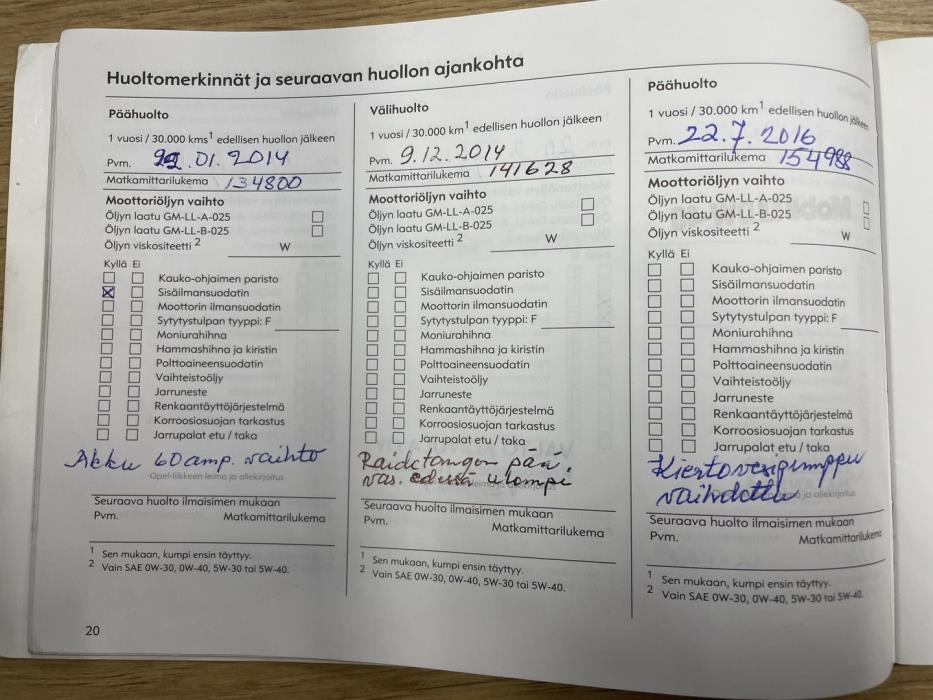 Huoltomerkinnät ja seuraavan huollon ajankohta
Päähuolto
1 vuosi / 30.000 kms1 edellisen huollon jälkeen
Pvm. 22.01.2014
Matkamittarilukema 134800
Moottoriöljyn vaihto
Öljyn laatu GM-LL-A-025
Öljyn laatu GM-LL-B-025
Öljyn viskositeetti 2 W
Kyllä Ei
Kauko-ohjaimen paristo
Sisäilmansuodatin
Moottorin ilmansuodatin
Sytytystulpan tyyppi: F
Moniurahihna
Hammashihna ja kiristin
Polttoaineensuodatin
Vaihteistoöljy
Jarruneste
Renkaantäyttöjärjestelmä
Korroosiosuojan tarkastus
Jarrupalat etu / taka
Akku 60 amp. vaihto
Opel-liikkeen leima ja allekirjoitus
Seuraava huolto ilmaisimen mukaan
Pvm. Matkamittarilukema
1 Sen mukaan, kumpi ensin täyttyy.
2 Vain SAE 0W-30, 0W-40, 5W-30 tai 5W-40.
20
Välihuolto
1 vuosi / 30.000 km1 edellisen huollon jälkeen
Pvm. 9.12.2014
Matkamittarilukema 141628
Moottoriöljyn vaihto
Öljyn laatu GM-LL-A-025
Öljyn laatu GM-LL-B-025
Öljyn viskositeetti 2 W
Kyllä Ei
Kauko-ohjaimen paristo
Sisäilmansuodatin
Moottorin ilmansuodatin
Sytytystulpan tyyppi: F
Moniurahihna
Hammashihna ja kiristin
Polttoaineensuodatin
Vaihteistoöljy
Jarruneste
Renkaantäyttöjärjestelmä
Korroosiosuojan tarkastus
Jarrupalat etu / taka
Raidetangon pää.
vas. edessä ulompi
Seuraava huolto ilmaisimen mukaan
Pvm. Matkamittarilukema
1 Sen mukaan, kumpi ensin täyttyy.
2 Vain SAE 0W-30, 0W-40, 5W-30 tai 5W-40.
Päähuolto
1 vuosi / 30.000 km1 edellisen huollon jälkeen
Pvm. 22.7.2016
Matkamittarilukema 154988
Moottoriöljyn vaihto
Öljyn laatu GM-LL-A-025
Öljyn laatu GM-LL-B-025
Öljyn viskositeetti 2 W
Kyllä Ei
Kauko-ohjaimen paristo
Sisäilmansuodatin
Moottorin ilmansuodatin
Sytytystulpan tyyppi: F
Moniurahihna
Hammashihna ja kiristin
Polttoaineensuodatin
Vaihteistoöljy
Jarruneste
Renkaantäyttöjärjestelmä
Korroosiosuojan tarkastus
Jarrupalat etu / taka
Kiertovesipumppu
vaihdettu
ja allekirjoitus
Seuraava huolto ilmaisimen mukaan
Pvm. Matkamittarilukema
1 Sen mukaan, kumpi ensin täyttyy.
2 Vain SAE 0W-30, 0W-40, 5W-30 tai 5W-40.